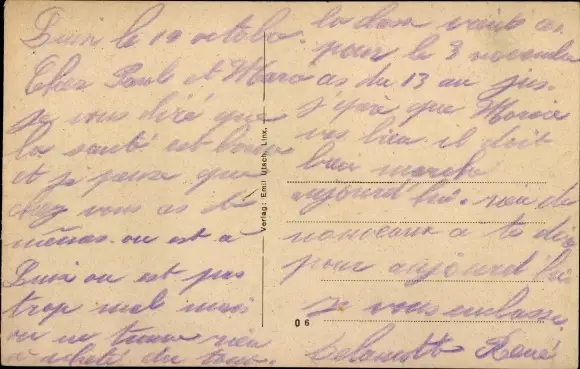 Linz le 19 octobre.
Cher Paul et Marc
je vous diré que
la santé est bonne
et je pense que
chez vous as de
mêmes. ou est a
Linz ou est pas
trop mal mais
ou ne trouve rien
a acheté du tout.
la classe
pour le 3 novembre
as du 13 au
j'espère que Marcie
vas bien il doit
bien marche
aujourd hui. rien de
nouveaux a te dire
pour aujourd hui
je vous embrasse.
René
Verlag: Emil Utsch, Linx.
06